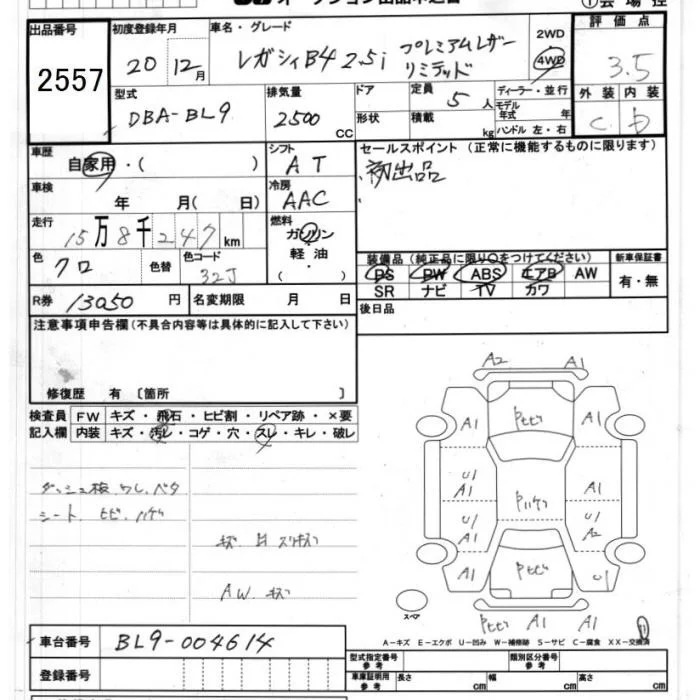 オークション出品申込書
①会場控
出品番号 2557
初度登録年月 20年 12月
車名・グレード レガシィB4 2.5i プレミアムレザーリミテッド
2WD 4WD
評価点 3.5
外装 C 内装 D
型式 DBA-BL9
排気量 2500 CC
ドア 形状
定員 5人
積載 kg
ディーラー・並行
モデル年式 年
ハンドル 左・右
車歴 自家用・( )
シフト AT
セールスポイント (正常に機能するものに限ります)
初出品
車検 年 月( 日)
冷房 AAC
走行 15万8千247km
燃料 ガソリン 軽油 ・( )
色 クロ 色替 色コード 32J
装備品 (純正品に限り○をつけてください)
PS PW ABS エアB AW
SR ナビ TV カワ
新車保証書 有・無
R券 13050円 名変期限 月 日
後日品
注意事項申告欄(不具合内容等は具体的に記入して下さい)
修復歴 有 〔箇所 〕
検査員記入欄
FW キズ・飛石・ヒビ割・リペア跡・×要
内装 キズ・汚レ・コゲ・穴・スレ・キレ・破レ
ダッシュ板 ワレ、ベタ
シート ヒビ、ハゲ
AW キズ
A2 A1
A1 Pトビ A1
U1 A1 Pハゲ A1
U1 A1 U1 A2
A1 Pトビ U1
Pトビ A1 A1
スペア
A-キズ E-エクボ U-凹み W-補修跡 S-サビ C-腐食 XX-交換済
車台番号 BL9-004614
登録番号
型式指定番号 参考 類別区分番号 参考
車庫証明用 参考 長さ cm 幅 cm 高さ cm